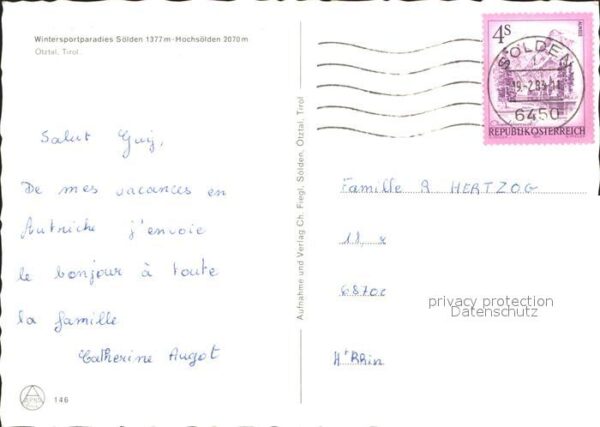 Wintersportparadies Sölden 1377m-Hochsölden 2070m
Ötztal, Tirol
Salut Guy,
De mes vacances en
Autriche j'envoie
le bonjour à toute
la famille
Catherine Augot
146
Aufnahme und Verlag Ch. Fiegl, Sölden, Ötztal, Tirol
4S
ALMSEE
REPUBLIK ÖSTERREICH
SÖLDEN
6450
Famille R. HERTZOG
68700
privacy protection
Datenschutz
Ht Rhin